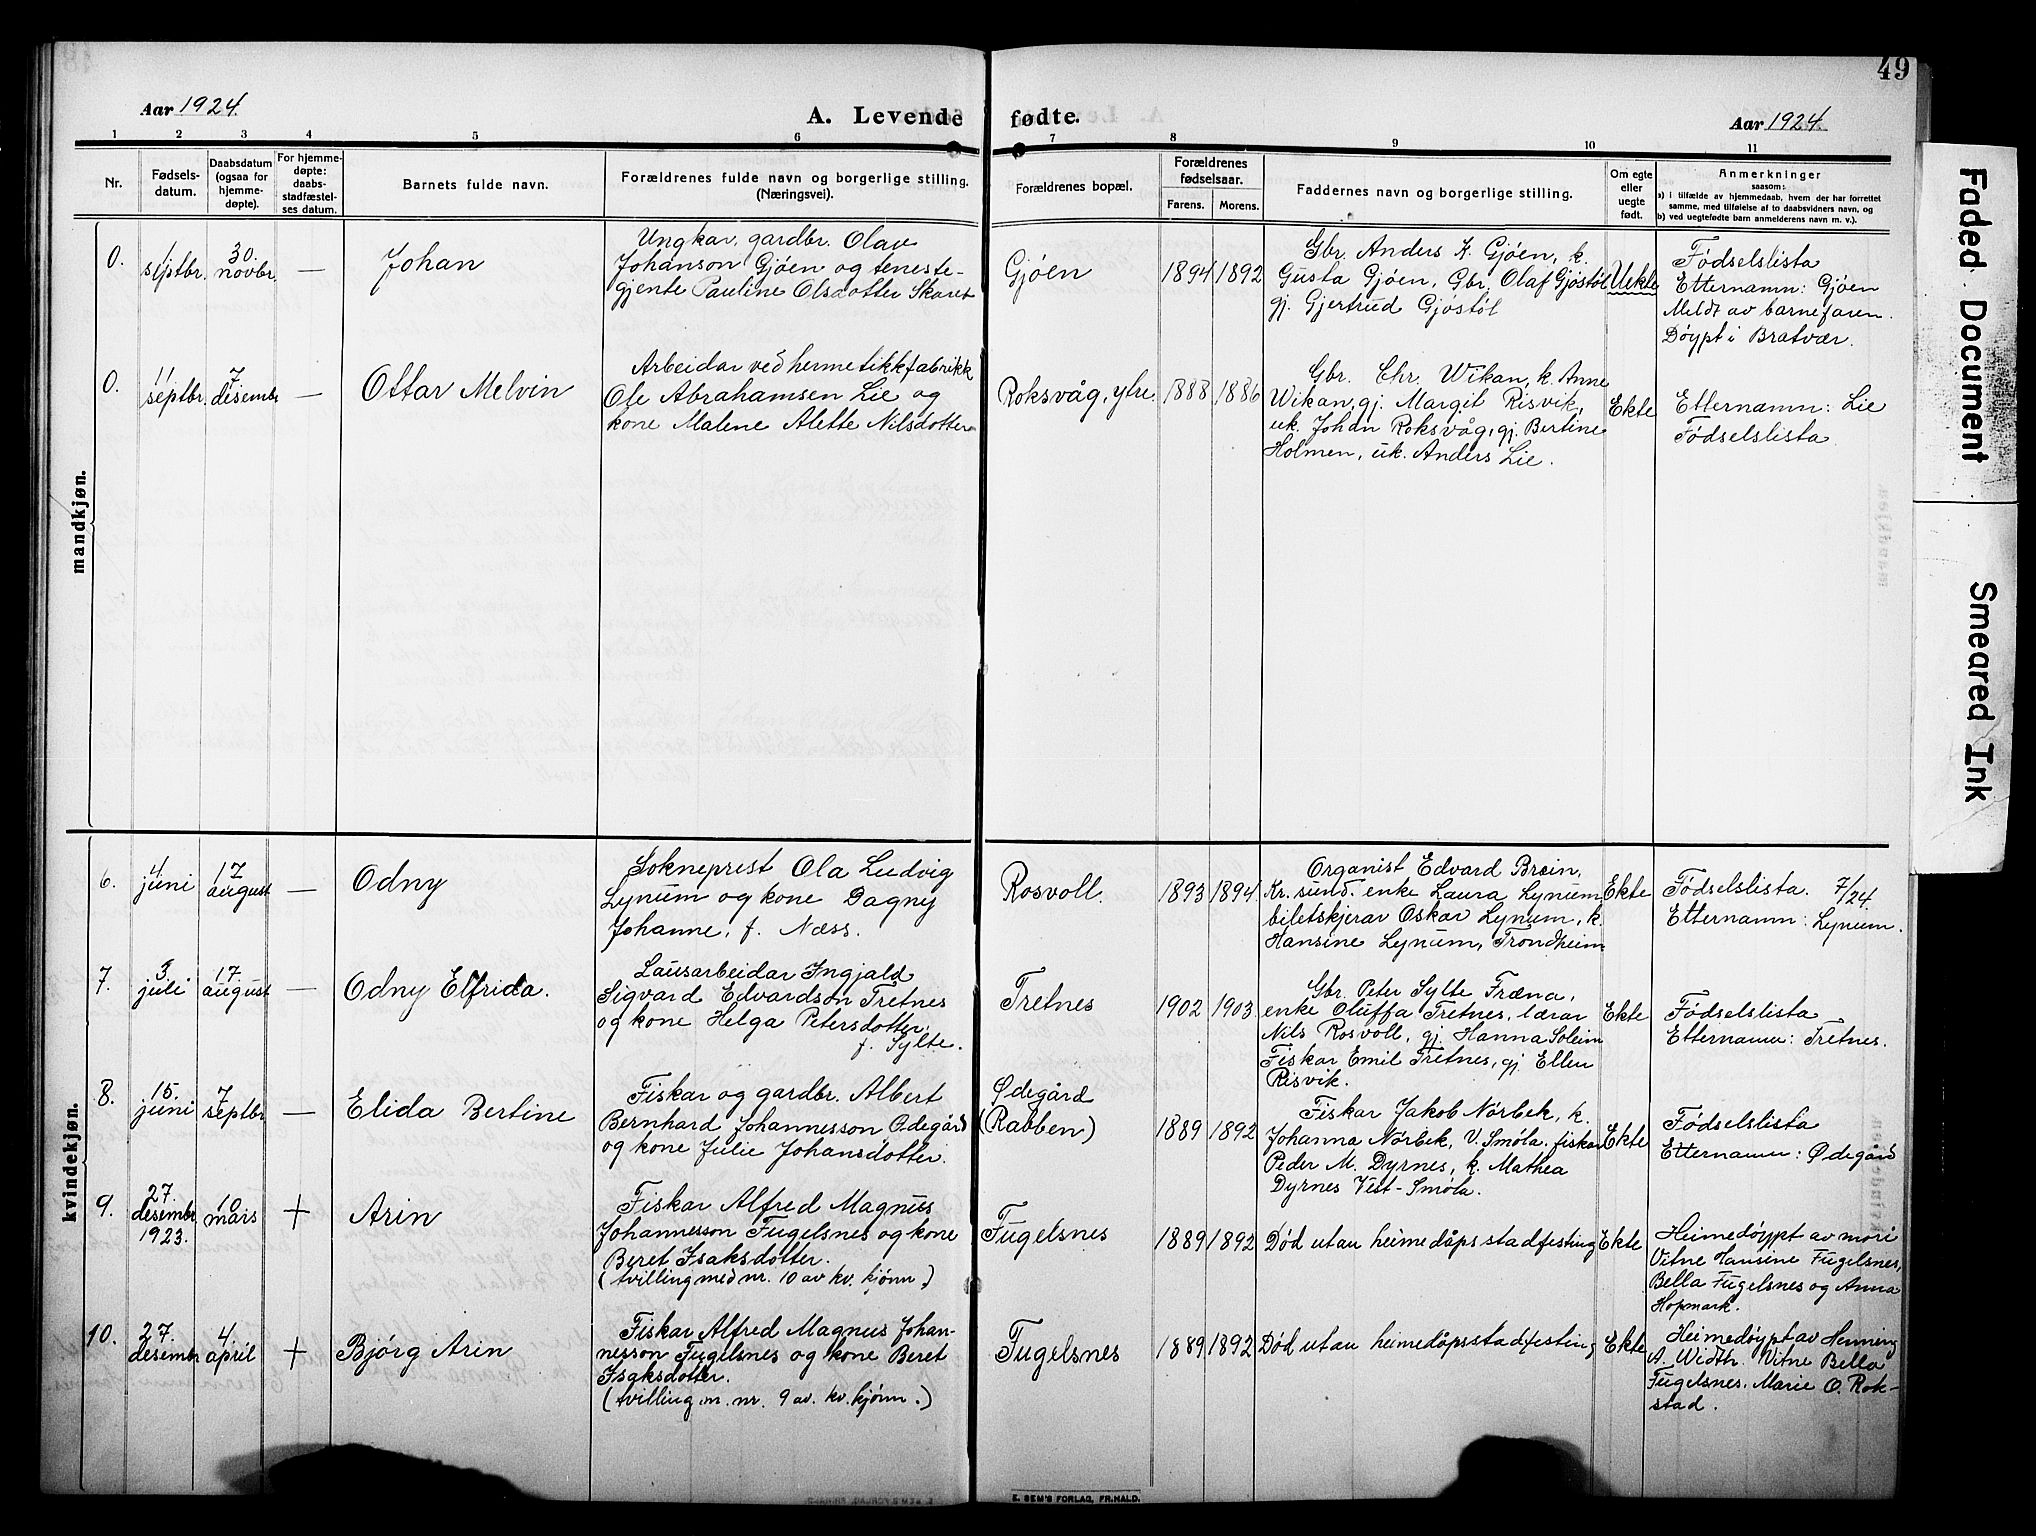 49
Aar 1924.
A. Levende fødte.
Aar 1924.
1 2 3 4 5 6 7 8 9 10 11
Nr.
Fødsels-
datum.
Daabsdatum
(ogsaa for
hjemme-
døpte).
For hjemme-
døpte:
daabs-
stadfæstel-
ses datum.
Barnets fulde navn.
Forældrenes fulde navn og borgerlige stilling.
(Næringsvei).
Forældrenes bopæl.
Forældrenes
fødselsaar.
Farens. Morens.
Faddernes navn og borgerlige stilling.
Om egte
eller
uegte
født.
Anmerkninger
saasom:
a) i tilfælde av hjemmedaab, hvem der har forrettet
samme, med tilføielse af to daabsvidners navn, og
b) ved uegtefødte barn anmelderens navn m. v.).
mandkjøn.
0.
1
septbr.
30.
novbr.
—
Johan
Ungkar, gardbr. Olav
Johanson Gjøen og teneste-
gjente Pauline Olsdotter Skaret
Gjøen
1894 1892
Gbr. Anders K. Gjøen, k.
Gusta Gjøen, Gbr. Olaf Gjøstøl
gj. Gjertrud Gjøstøl
Uekte
Fødselslista
Etternamn: Gjøen
Meldt av barnefaren.
Døypt i Bratvær.
0.
11
septbr.
7
desembr
—
Ottar Melvin
Arbeidar ved hermetikkfabrikk
Ole Abrahamsen Lie og
kone Malene Alette Nilsdotter
Roksvåg, ytre.
1888 1886
Gbr. Chr. Wikan, k. Anne
Wikan, gj. Margit Risvik,
uk. Johan Roksvåg, gj. Bertine
Holmen, uk. Anders Lie.
Ekte
Etternamn: Lie
Fødselslista
kvindekjøn.
6.
4
juni
17
august
—
Odny
Sokneprest Ola Ludvig
Lynum og kone Dagny
Johanne, f. Næss.
Rosvoll.
1893 1894
Organist Edvard Bræin,
Kr.sund. enke Laura Lynum
biletskjerar Oskar Lynum, k.
Hansine Lynum, Trondheim
Ekte
Fødselslista. 7/24.
Etternamn: Lynum.
7.
3
juli
17
august
—
Odny Elfrida.
Lausarbeidar Ingjald
Sigvard Edvardson Tretnes
og kone Helga Petersdotter,
f. Sylte.
Tretnes
1902 1903
Gbr. Peter Sylte Fræna,
enke Oluffa Tretnes, lærar
Nils Rosvoll, gj. Hanna Soleim
Fiskar Emil Tretnes, gj Ellen
Risvik.
Ekte
Fødselslista
Etternamn: Tretnes.
8.
15.
juni
7
septbr
—
Elida Bertine
Fiskar og gardbr. Albert
Bernhard Johannesson Ødegård
og kone Julie Johansdotter.
Ødegård
(Rabben)
1889 1892
Fiskar Jakob Nørbek, k.
Johanna Nørbek, V. Smøla. fiskar
Peder M. Dyrnes, k. Mathea
Dyrnes Vest-Smøla.
Ekte
Fødselslista
Etternamn: Ødegård
9.
27.
desembr
1923.
10
mars
+
Arin
Fiskar Alfred Magnus
Johannesson Fugelsnes og kone
Beret Isaksdotter.
(tvilling med nr. 10 av kv. kjønn.)
Fugelsnes
1889 1892
Død utan heimedåps stadfesting
Ekte
Heimedøypt av mori
Vitne Hansine Fugelsnes,
Bella Fugelsnes og Anna
Hopmark.
10.
27
desembr
4
april
+
Bjørg Arin
Fiskar Alfred Magnus Johan-
nesson Fugelsnes og kone Beret
Isaksdotter.
(tvilling m. nr. 9 av. kv. kjønn.)
Fugelsnes
1889 1892
Død utan heimedåpsstadfesting
Ekte
Heimedøypt av Henning
A. Width. Vitne Bella
Fugelsnes. Marie O. Rok-
stad.
E. SEM'S FORLAG, FR.HALD.
Faded Document
Smeared Ink